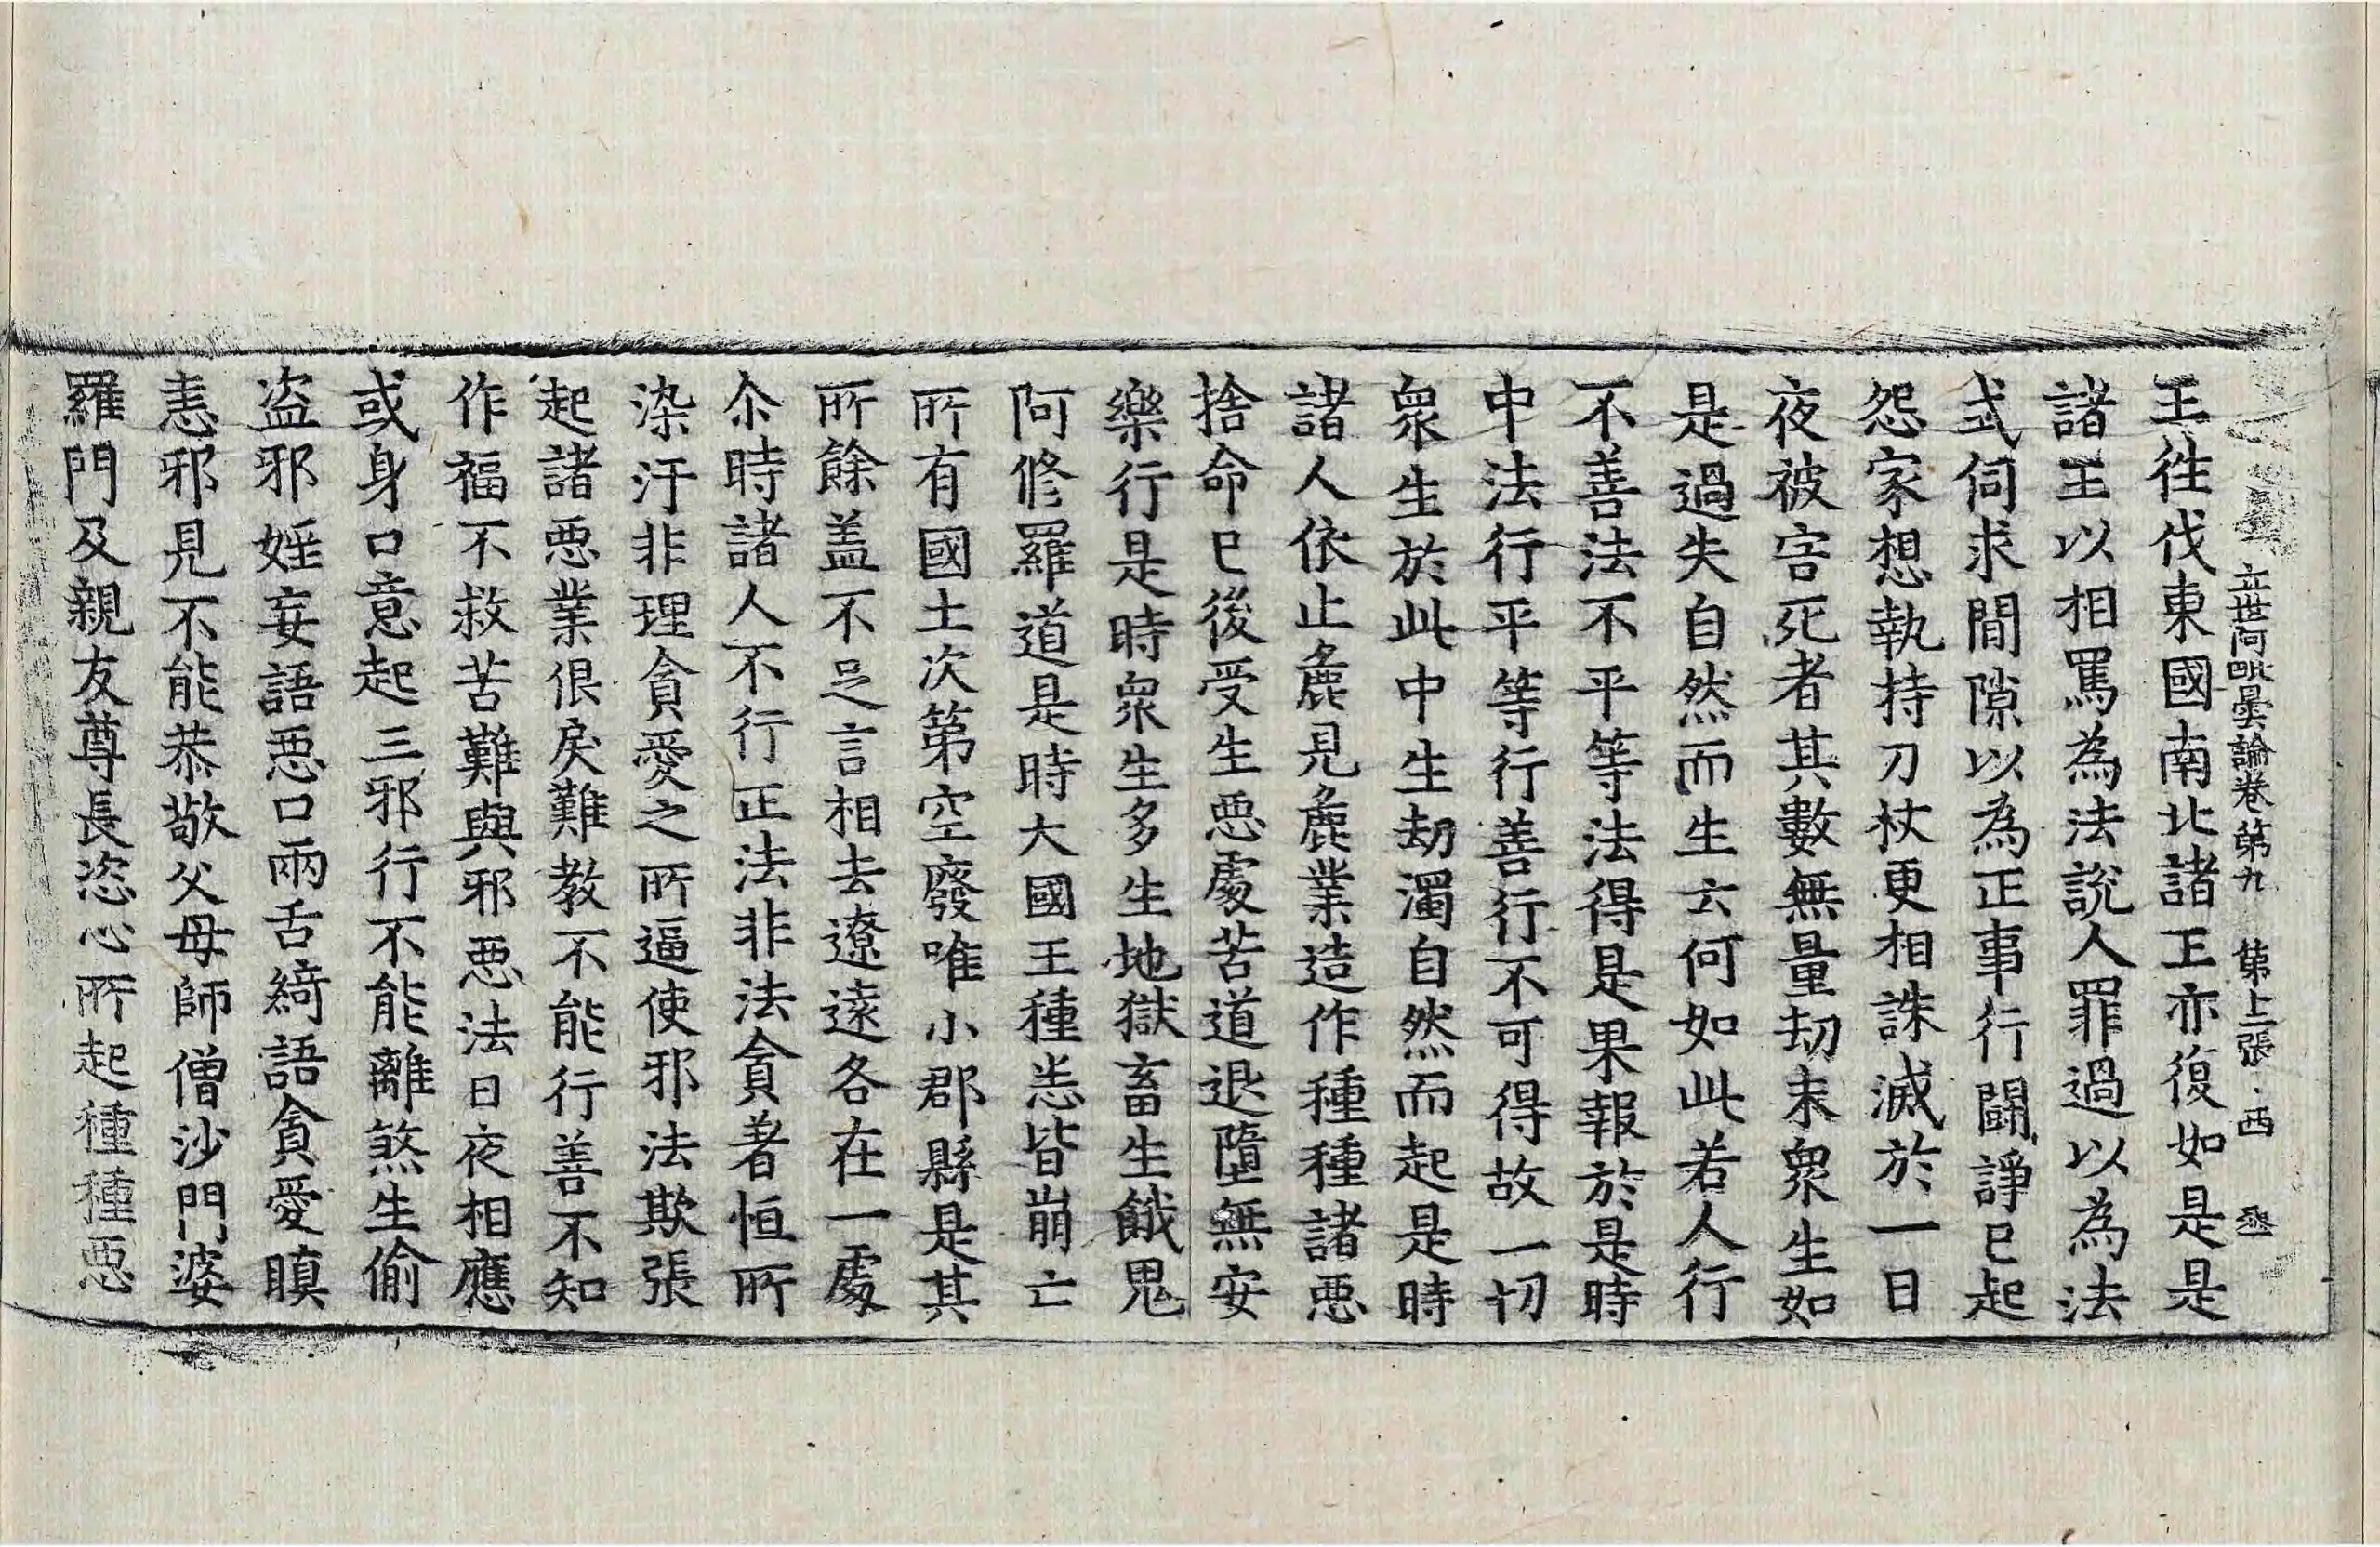 立世阿毗曇論卷第九　第上張　西
王往伐東國南北諸王亦復如是是
諸王以相罵為法說人罪過以為法
式伺求間隙以為正事行鬪諍已起
怨家想執持刀杖更相誅滅於一日
夜被害死者其數無量劫末衆生如
是過失自然而生云何如此若人行
不善法不平等法得是果報於是時
中法行平等行善行不可得故一切
衆生於此中生劫濁自然而起是時
諸人依止麁見麁業造作種種諸惡
捨命已後受生惡處苦道退墮無安
樂行是時衆生多生地獄畜生餓鬼
阿修羅道是時大國王種悉皆崩亡
所有國土次第空廢唯小郡縣是其
所餘盖不足言相去遼遠各在一處
尒時諸人不行正法非法貪著恒所
染汙非理貪愛之所逼使邪法欺張
起諸惡業佷戾難教不能行善不知
作福不救苦難與邪惡法日夜相應
或身口意起三邪行不能離煞生偷
盗邪婬妄語惡口兩舌綺語貪愛瞋
恚邪見不能恭敬父母師僧沙門婆
羅門及親友尊長恣心所起種種惡